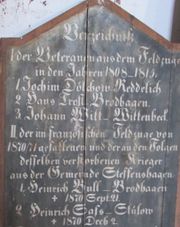 Verzeichniß
I der Veteranen aus dem Feldzuge
in den Jahren 1808-1815.
1 Jochim Dölchow Reddelich
2 Hans Trost Brodhagen
3 Johann Witt Wittenbeck
II der im französischen Feldzuge von
1870/71 gefallenen und der an den Folgen
desselben verstorbenen Krieger
aus der Gemeinde Steffenshagen
1. Heinrich Bull Brodhagen
+ 1870 Sept. 21.
2 Heinrich Saß Stülow
+ 1870 Decb 2.